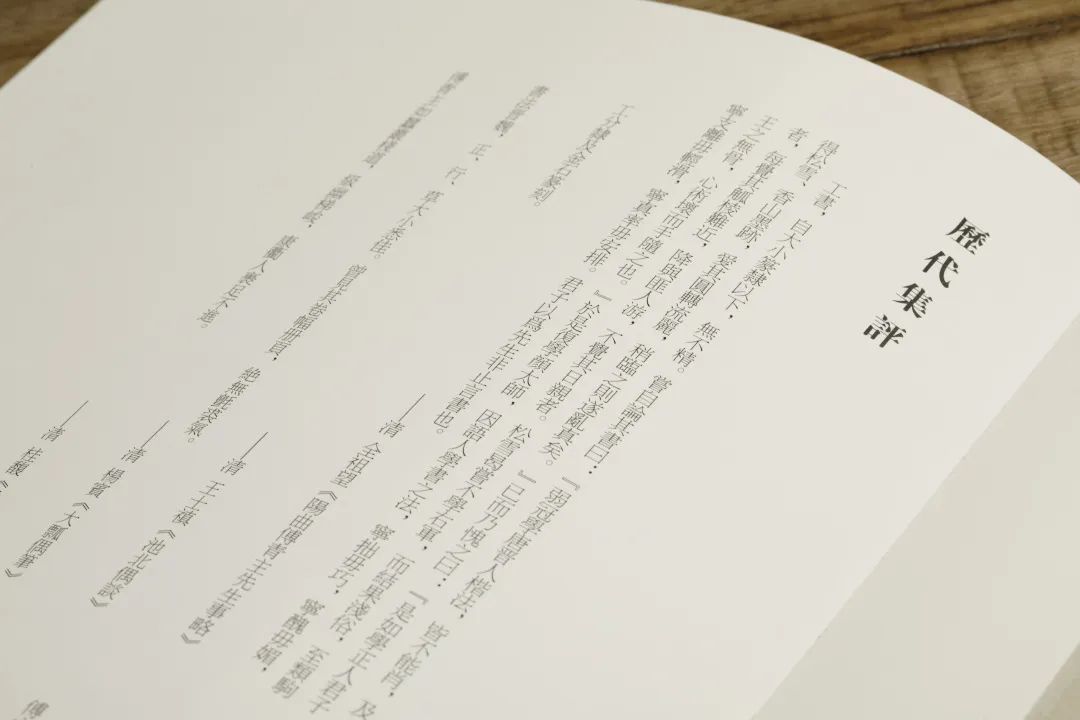 歷代集評
工書，自大小篆隸以下，無不精。嘗自論其書曰：『弱冠學唐晉人楷法，皆不能肖，及
得松雪、香山墨跡，愛其圓轉流麗，稍臨之則遂亂真矣。』已而乃愧之曰：『是如學正人君子
者，每覺其觚棱難近，降與匪人游，不覺其日親者。松雪曷嘗不學右軍，而結果淺俗，至類駒
王之無骨，心術壞而手隨之也。』於是復學顏太師，因語人學書之法，寧拙毋巧，寧醜毋媚，
寧支離毋輕滑，寧真率毋安排。』君子以爲先生非止言書也。
——清 全祖望《陽曲傅青主先生事略》
工分隸及金石篆刻。
——清 王士禛《池北偶談》
書法晉魏，正、行、草大小悉佳。曾見其卷幅冊頁，絕無氈裘氣。
——清 楊賓《大瓢偶筆》
傅青主如蠶叢棧道，人裹足不進。
——清 桂馥《
傅